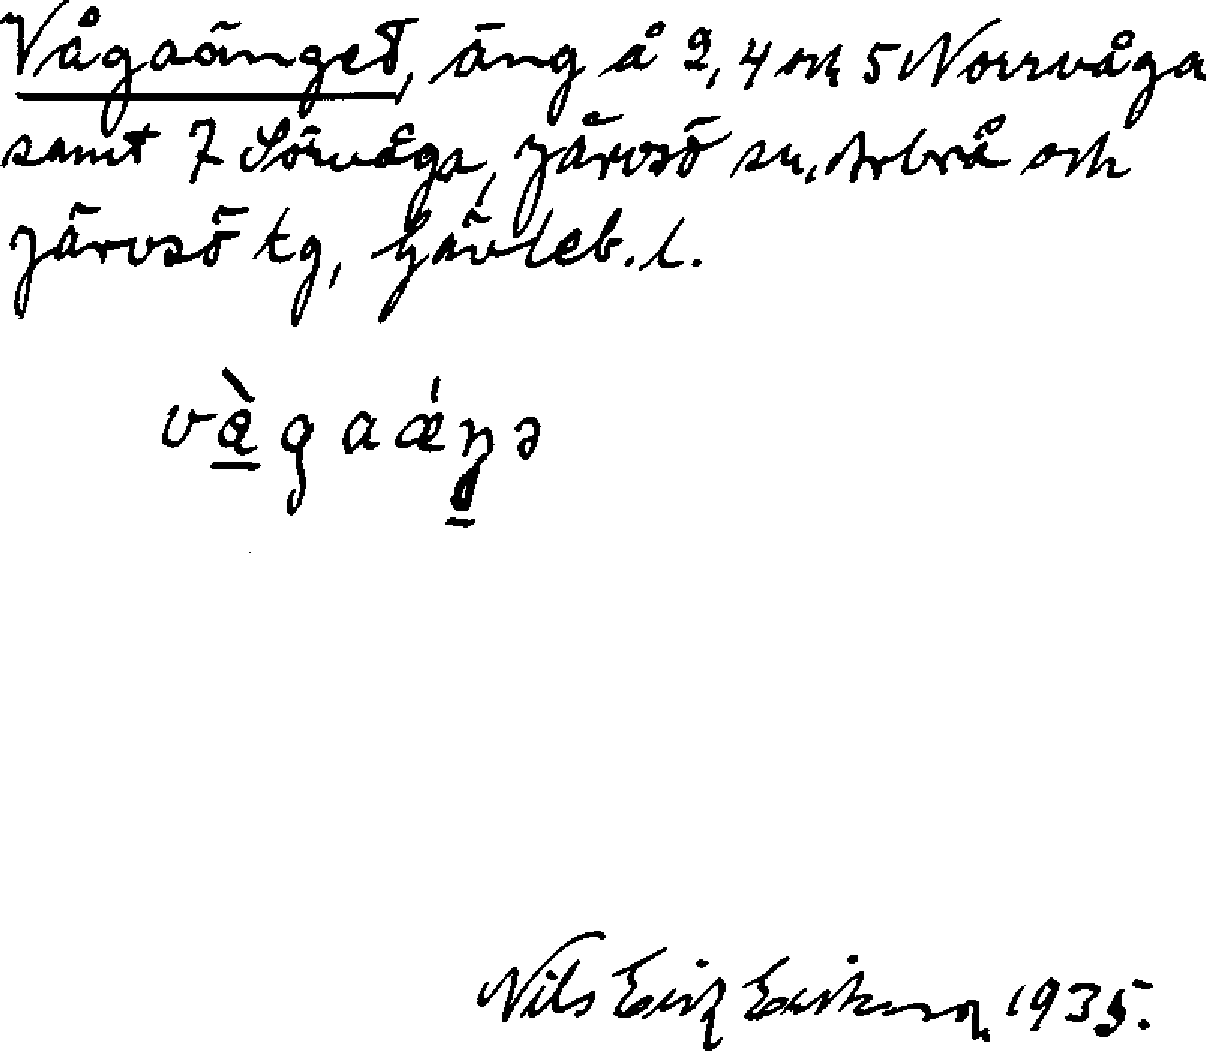 Vågaänget, äng å 2, 4 och 5 Norrvåga
samt 7 Sörvåga, Järvsö sn, Arbrå och
Järvsö tg, Gävleb. l.
vàgaǽŋə
Nils Erik Eriksson 1935.